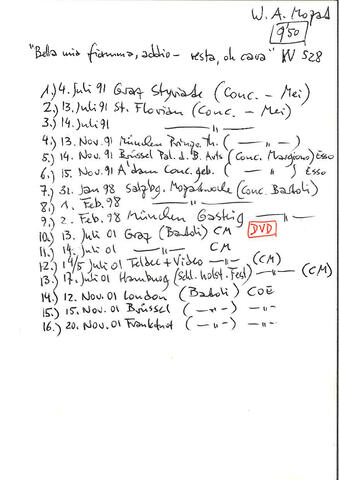 W. A. Mozart
9'50
"Bella mia fiamma, addio - resta, oh cara" KV 528
1.) 4. Juli 91 Graz Styriarte (Conc. - Mei)
2.) 13. Juli 91 St. Florian (Conc. - Mei)
3.) 14. Juli 91 —"—
4.) 13. Nov. 91 München Prinzr. Th. (—"—)
5.) 14. Nov. 91 Brüssel Pal. d. B. Arts (Conc. Margiono) Esso
6.) 15. Nov. 91 A'dam Conc. geb. (—"—) Esso
7.) 31. Jan 98 Salzbg. Mozartwoche (Conc. Bartoli)
8.) 1. Feb. 98 —"—
9.) 2. Feb. 98 München Gasteig —"—
10.) 13. Juli 01 Graz (Bartoli) CM DVD
11.) 14. Juli 01 —"— CM
12.) 14/5 Juli 01 Teldec + Video —"— (CM)
13.) 17. Juli 01 Hamburg (Schl. Holst. Fest) —"— (CM)
14.) 12. Nov. 01 London (Bartoli) COE
15.) 15. Nov. 01 Brüssel (—"—) —"—
16.) 20. Nov. 01 Frankfurt (—"—) —"—